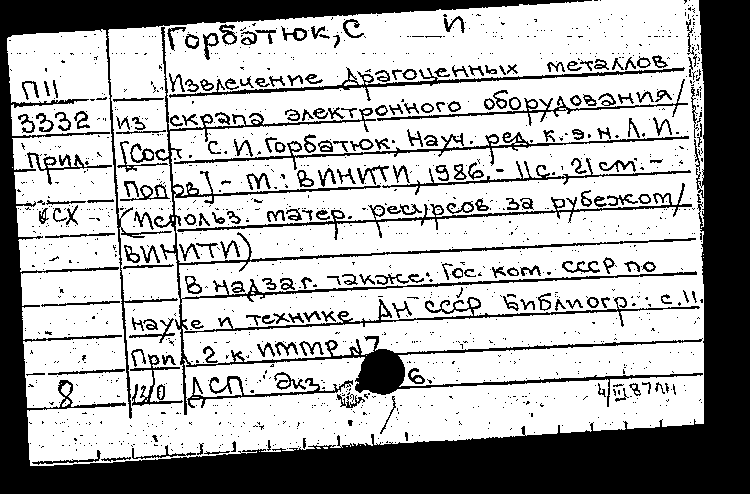 Горбатюк, С И
П11 Извлечение драгоценных металлов
3332 из скрапа электронного оборудования/
Прил. [Сост. С. И. Горбатюк; Науч. ред. к. э. н. Л. И.
Попов]. - М.: ВИНИТИ, 1986. - 11 с., 21 см. -
(Использ. матер. ресурсов за рубежом/
ВИНИТИ)
В надзаг. также: Гос. ком. СССР по
науке и технике, АН СССР. Библиогр.: с. 11.
Прил. 2 к ИММР №7
8 ДСП. Экз. 6.
4/III 87